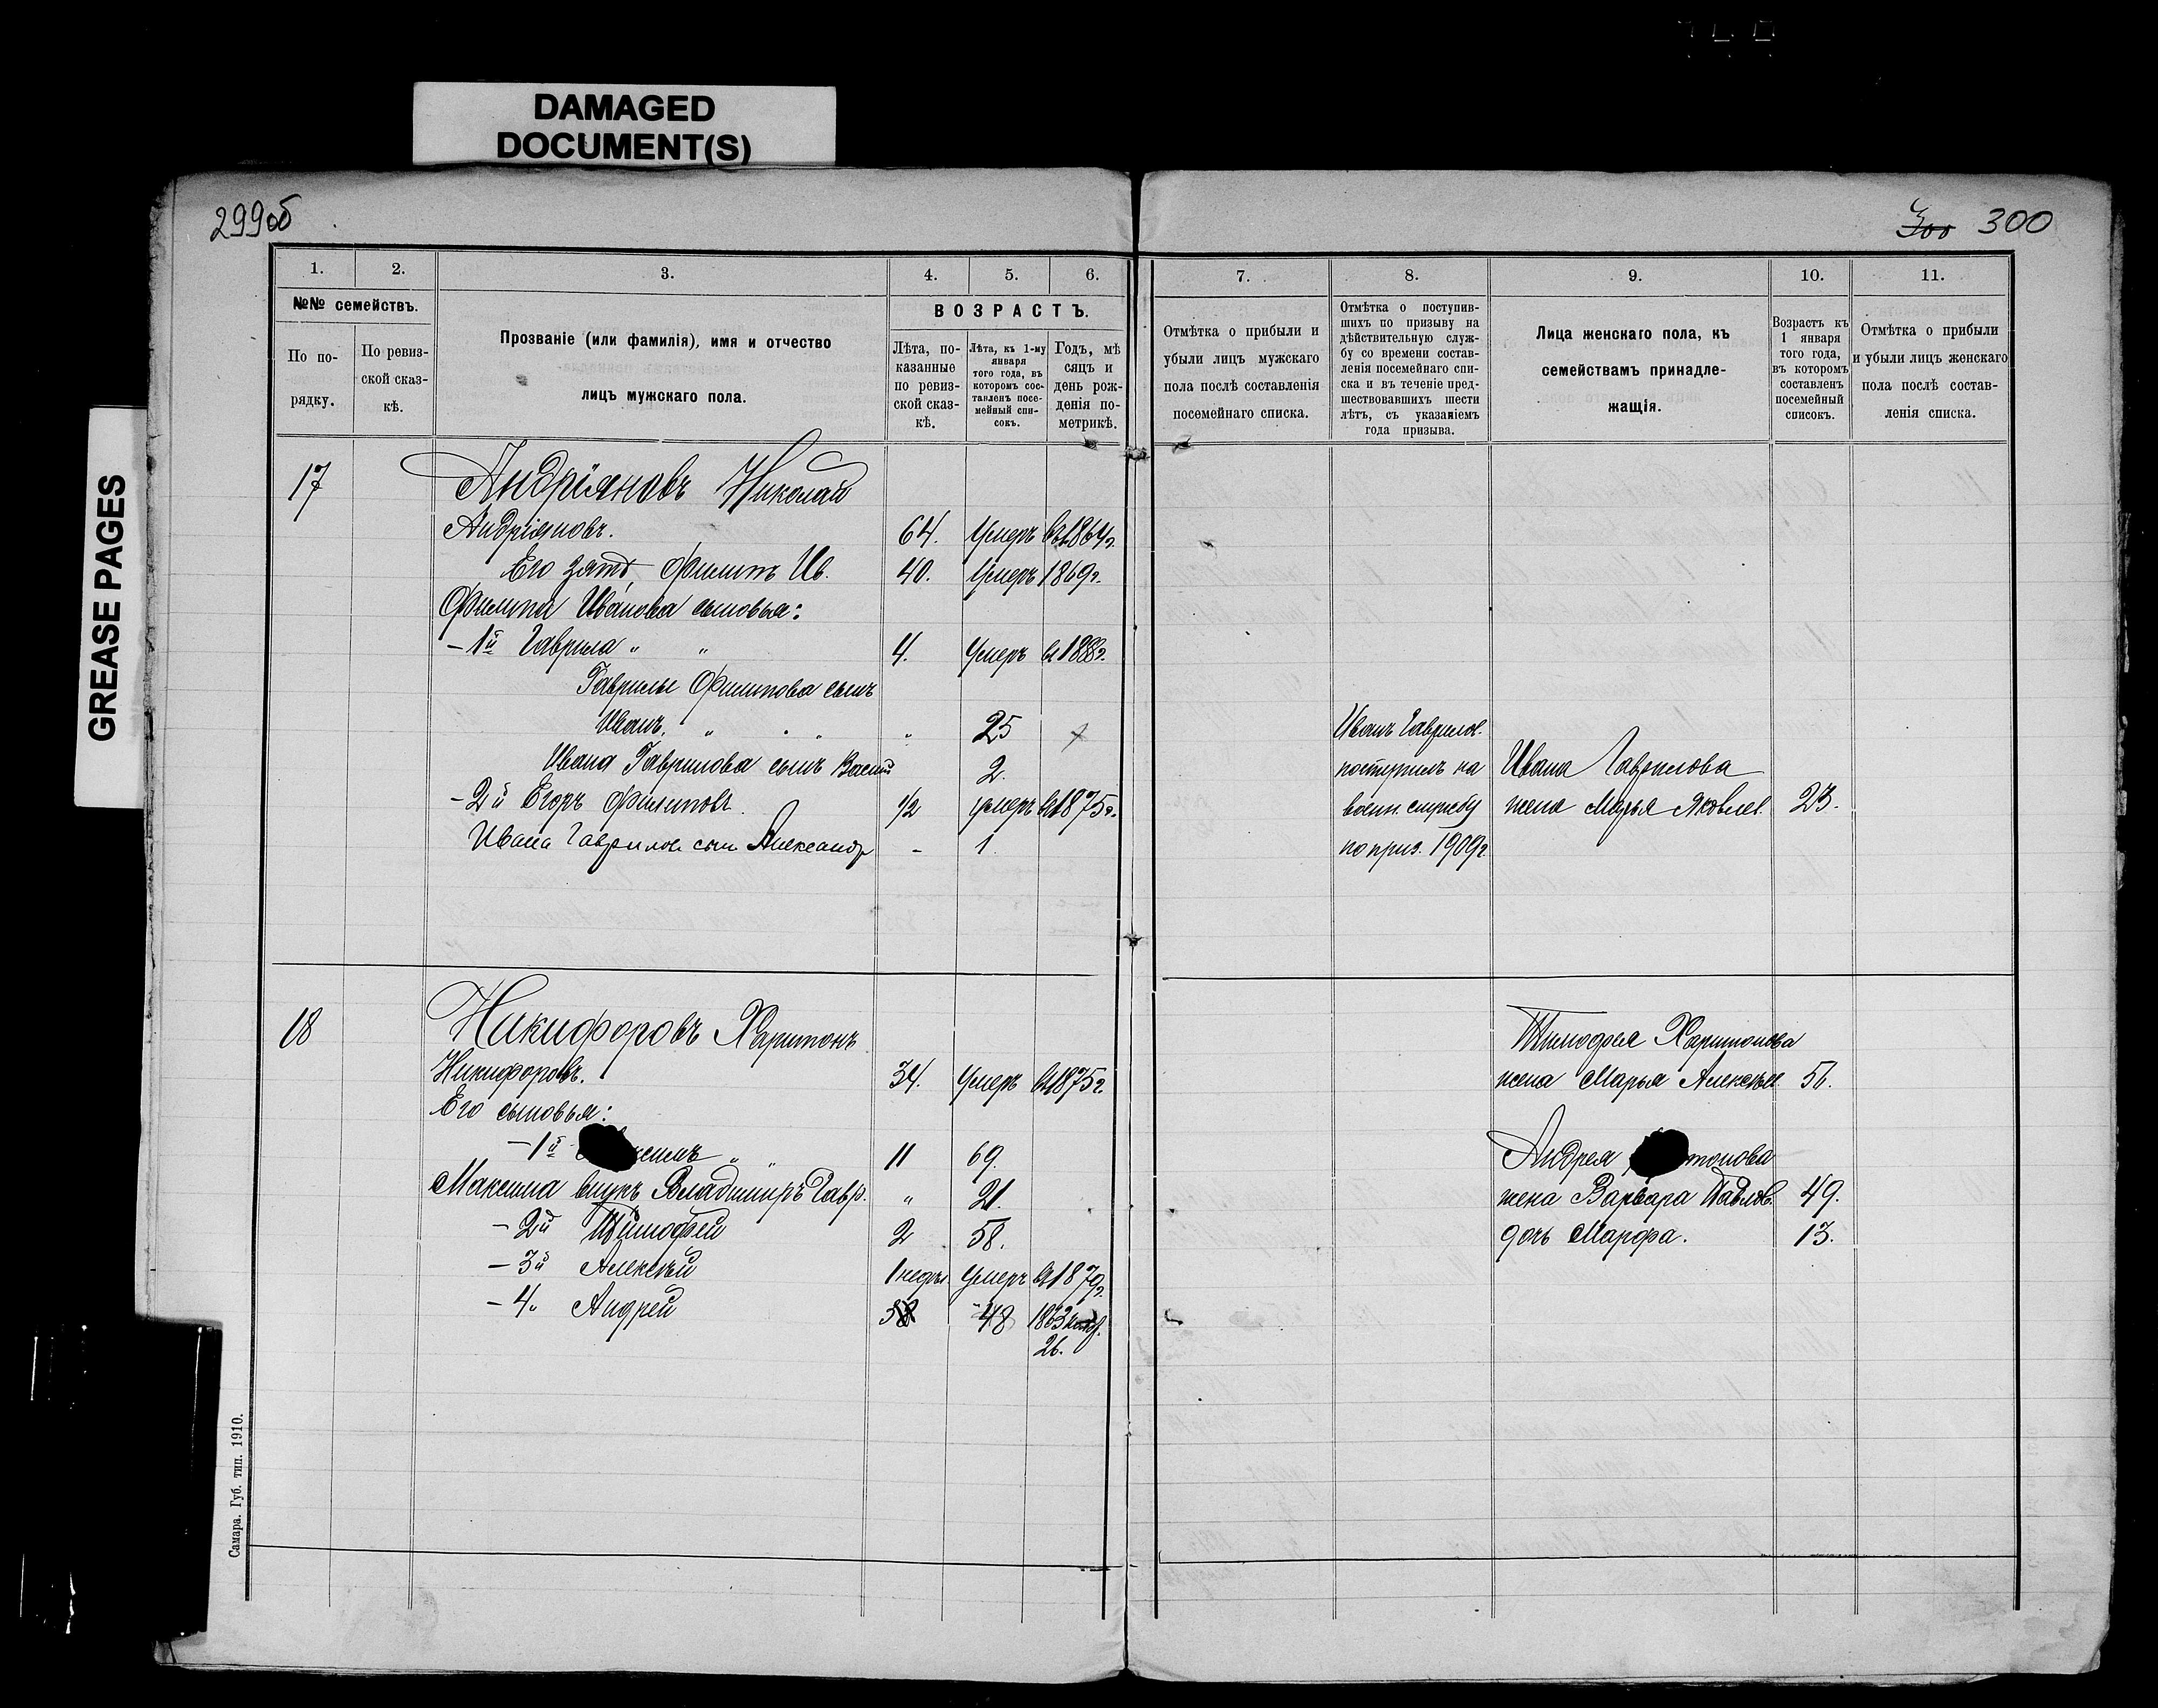 DAMAGED
DOCUMENT(S)
GREASE PAGES
299об
300 300
1. 2. 3. 4. 5. 6.
№№ семействъ.
По по-
рядку.
По ревиз-
ской сказ-
кѣ.
Прозваніе (или фамилія), имя и отчество
лицъ мужскаго пола.
ВОЗРАСТЪ.
Лѣта, по-
казанные
по ревиз-
ской сказ-
кѣ.
Лѣта, къ 1-му
января
того года, въ
которомъ сос-
тавленъ посе-
мейный спи-
сокъ.
Годъ, мѣ
сяцъ и
день рож-
денія по-
метрикѣ.
7. 8. 9. 10. 11.
Отмѣтка о прибыли и
убыли лицъ мужскаго
пола послѣ составленія
посемейнаго списка.
Отмѣтка о поступив-
шихъ по призыву на
дѣйствительную служ-
бу со времени состав-
ленія посемейнаго спи-
ска и въ теченіе пред-
шествовавшихъ шести
лѣтъ, съ указаніемъ
года призыва.
Лица женскаго пола, къ
семействамъ принадле-
жащія.
Возрастъ къ
1 января
того года,
въ которомъ
составленъ
посемейный
списокъ.
Отмѣтка о прибыли
и убыли лицъ женскаго
пола послѣ состав-
ленія списка.
17 Андріяновъ Николай
Андріяновъ. 64. Умеръ въ 1864г.
Его зять, Филипъ Ив. 40. Умеръ 1869г.
Филипа Иванова сыновья:
- 1й Гаврила " " 4. Умеръ въ 1888г.
Гаврилы Филипова сынъ
Иванъ. " " " 25
Ивана Гаврилова сынъ Васил 2.
- 2й Егоръ Филиповъ. 1/2 умеръ въ 1875г.
Ивана Гаврилов. сын Александр - 1
Иванъ Гаврилов.
поступилъ на
воен. службу
по приз. 1909г.
Ивана Гаврилова
жена Марья Яковлев. 23.
18 Никифоровъ Харитонъ
Никифоровъ. 34. Умеръ въ 1875г.
Его сыновья:
- 1й ксимъ " " 11 69.
Максима внукъ Владимиръ Гавр. " 21.
- 2й Тимофей 2 58.
- 3й Алексѣй 1 недѣл. Умеръ въ 1879г.
- 4. Андрей 48 1863
26.
Тимофея Харитонова
жена Марья Алексѣев. 56.
Андрея тонова
жена Варвара Павлов. 49.
дочь Марфа. 13.
Самара. Губ. тип. 1910.